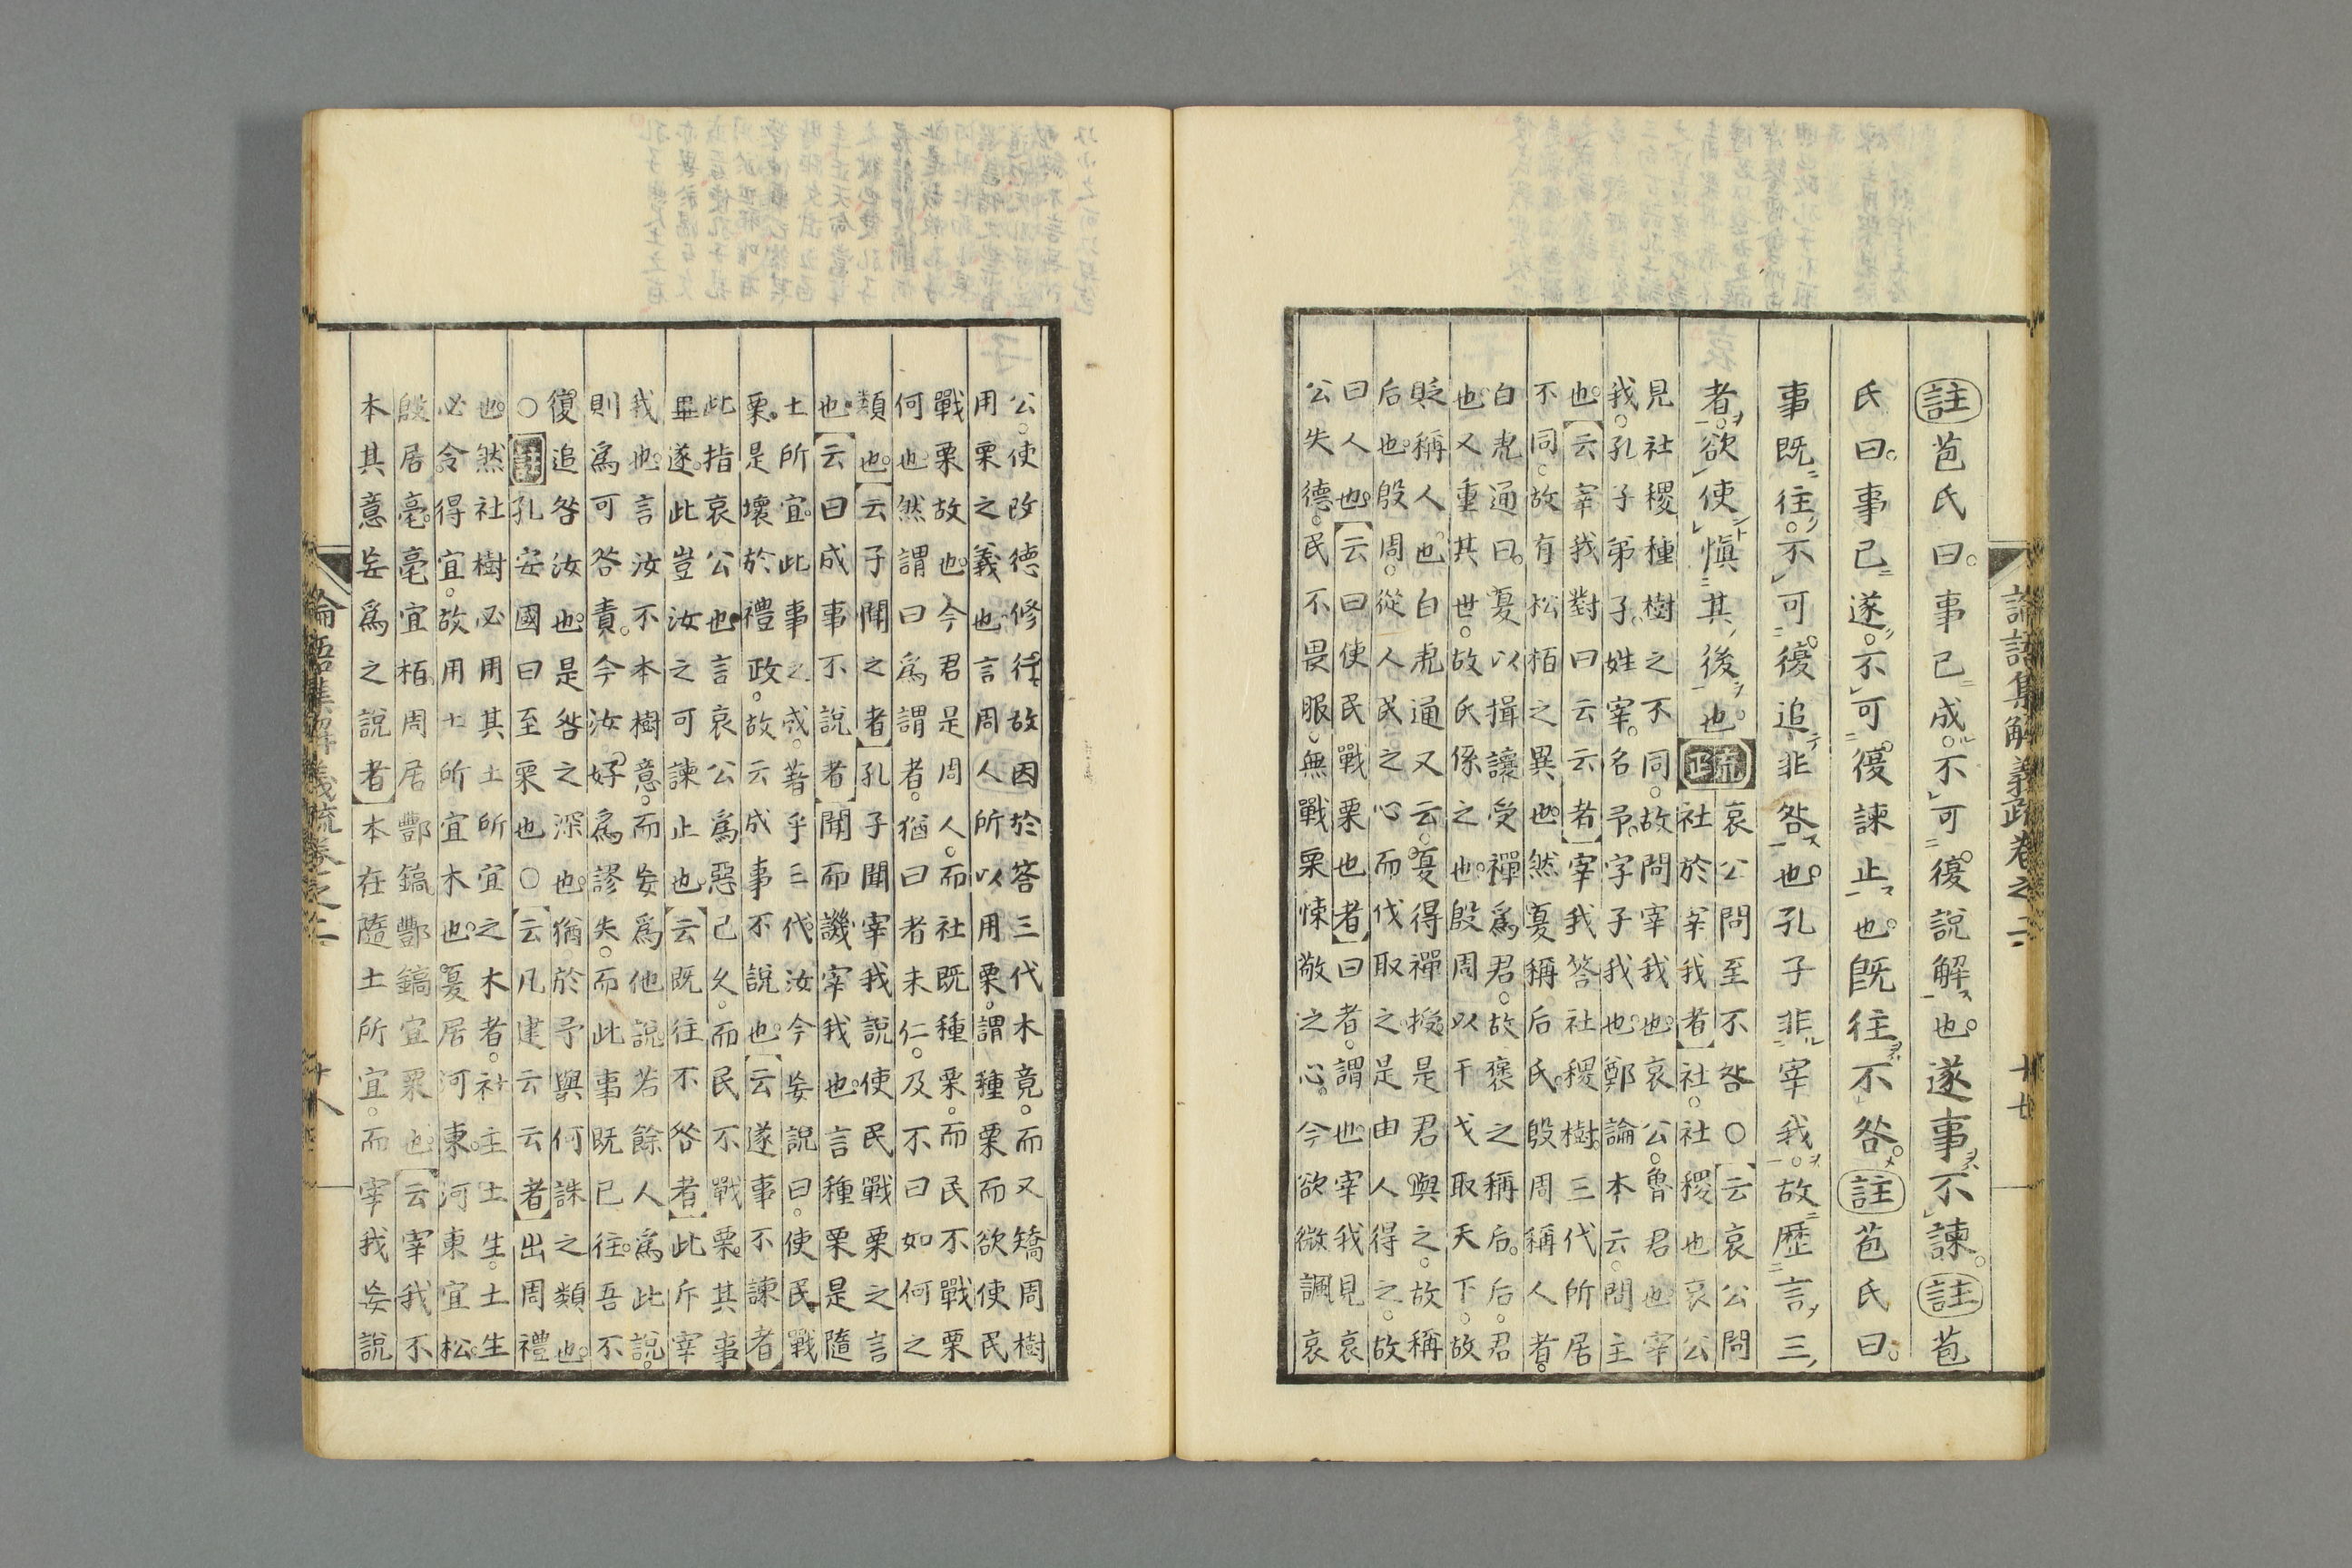 論語集解義疏卷之二
十七
註苞氏曰事已成不可復說解也遂事不諫註苞
氏曰事已遂不可復諫止也既往不咎註苞氏曰
事既往不可復追非咎也孔子非宰我故歷言三
者欲使愼其後也疏正
哀公問至不咎○云哀公問
社於宰我者社社稷也哀公
見社稷種樹之不同故問宰我也哀公魯君也宰
我孔子弟子姓宰名予字子我也鄭論本云問主
也云宰我對曰云云者宰我答社稷樹三代所居
不同故有松栢之異也然夏稱后氏殷周稱人者
白虎通曰夏以揖讓受禪爲君故褒之稱后后君
也又重其世故氏係之也殷周以干戈取天下故
貶稱人也白虎通又云夏得禪授是君與之故稱
后也殷周從人民之心而伐取之是由人得之故
曰人也云曰使民戰栗也者曰者謂也宰我見哀
公失德民不畏服無戰栗悚敬之心今欲微諷哀
公使改德修行故因於答三代木竟而又矯周樹
用栗之義也言周人所以用栗謂種栗而欲使民
戰栗故也今君是周人而社既種栗而民不戰栗
何也然謂曰爲謂者猶曰者未仁及不曰如何之
類也云子聞之者孔子聞宰我說使民戰栗之言
也云曰成事不說者聞而譏宰我也言種栗是隨
土所宜此事之成著乎三代汝今妄說曰使民戰
栗是壞於禮政故云成事不說也云遂事不諫者
此指哀公也言哀公爲惡已久而民不戰栗其事
畢遂此豈汝之可諫止也云既往不咎者此斥宰
我也言汝不本樹意而妄爲他說若餘人爲此說
則爲可咎責今汝好爲謬失而此事既已往吾不
復追咎汝也是咎之深也猶於予與何誅之類也
○註孔安國曰至栗也○云凡建云云者出周禮
也然社樹必用其土所宜之木者社主土生土生
必令得宜故用土所宜木也夏居河東河東宜松
殷居亳亳宜栢周居酆鎬酆鎬宜栗也云宰我不
本其意妄爲之說者本在隨土所宜而宰我妄說
論語集解義疏卷之二
十八